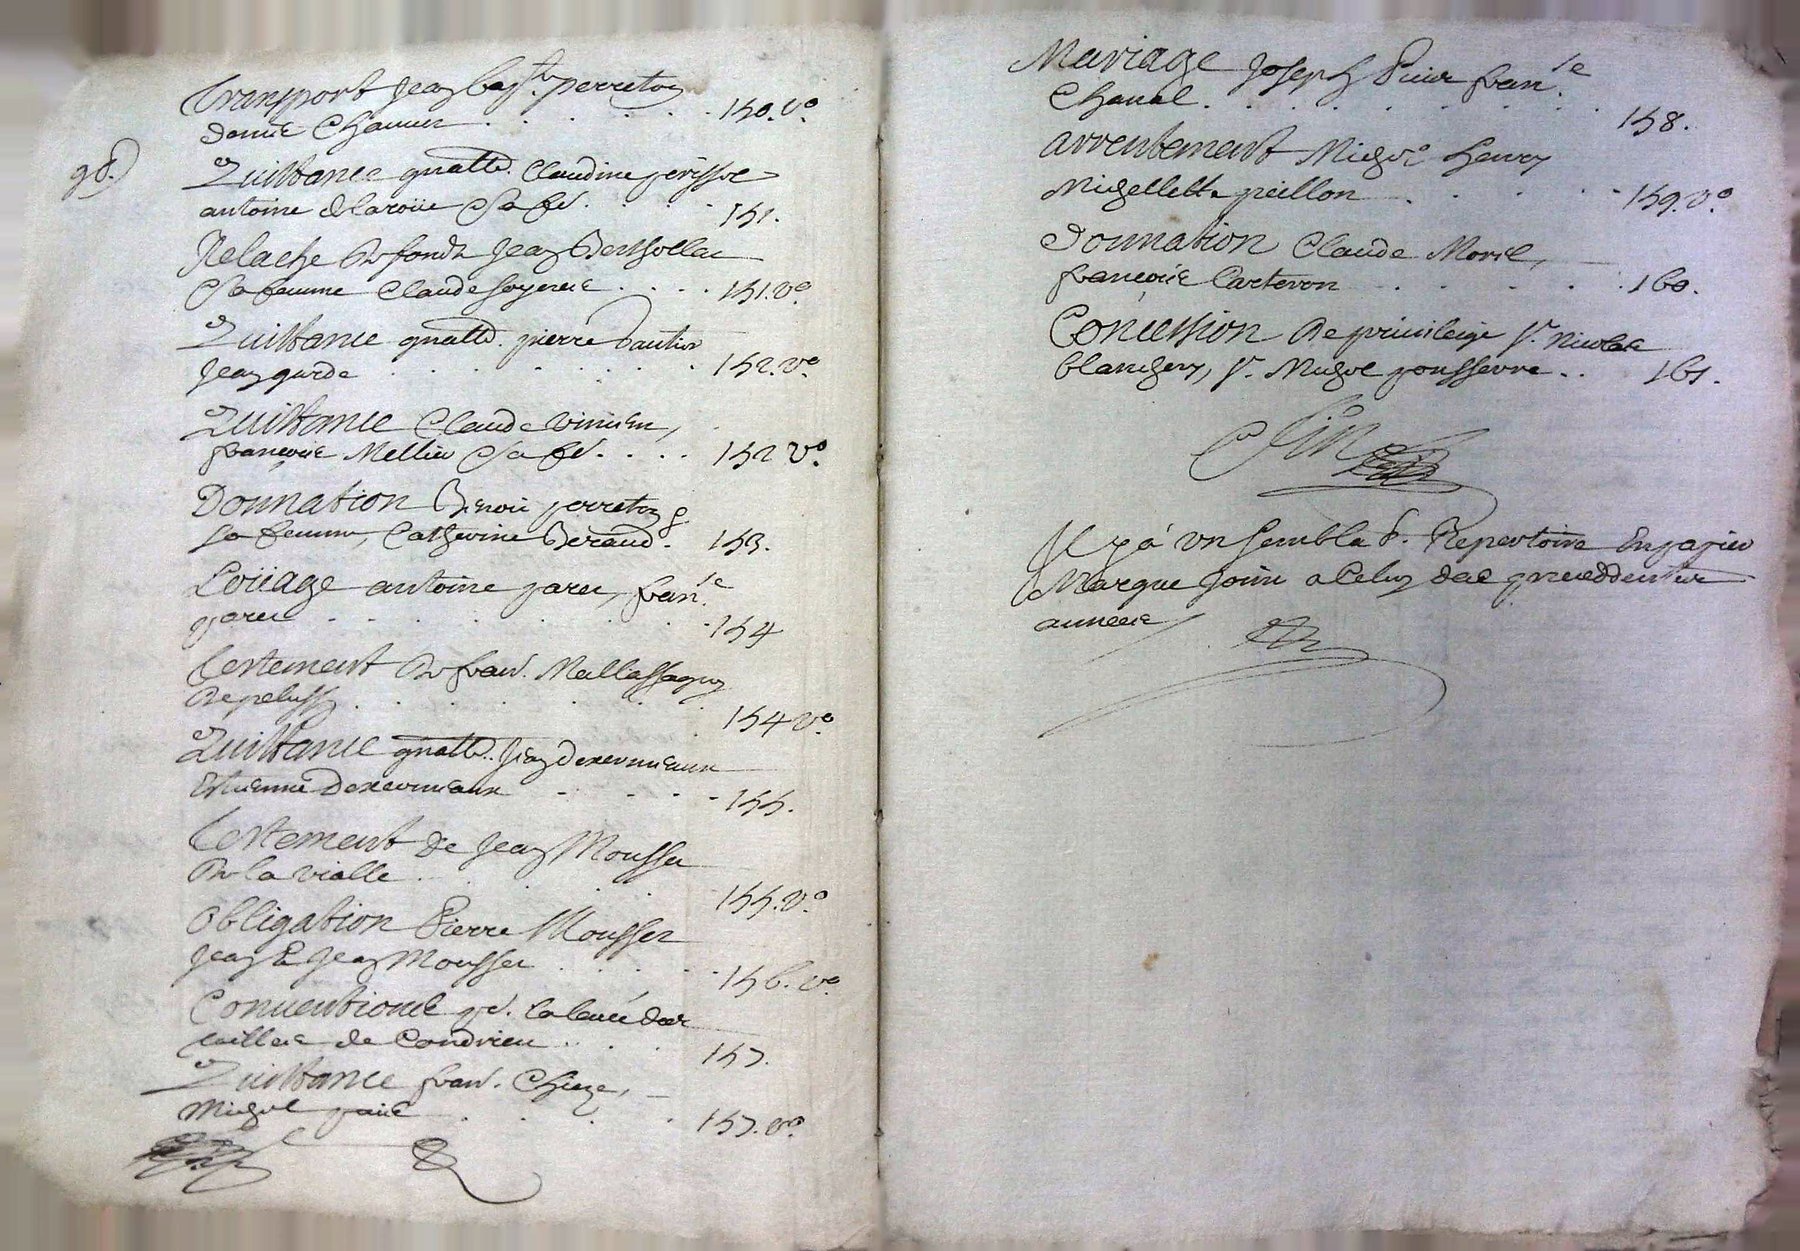 Transport Jean bapt.te perreton
Danie Chauuin . . . . . . 150. v.o
98.
Quittance gnalle. Claudine perisse
antoine Claroüe Sa fe. . . . . 151.
Relache De fondz Jean Berthollac
Sa femme Claude soyerie . . . . 151. v.o
Quittance gnalle. pierre Dautin
Jean garde . . . . . . 152. v.o
Quittance Claude vinien,
françoise Mellier Sa fe. . . . 152 v.o
Donnation Benoit perreton &
sa femme, Catherine Beraud. 153.
Loüage antoine parer, fran.se
parer . . . . . . 154
Testement De fran. Mallassagny
De peluss . . . . . 154 v.o
Quittance gnalle. Jean Dexermieaux
Estienne Dexermieaux . . . . 155.
Testement de Jean Mousser
De la vialle . . . . 155. v.o
Obligation Pierre Mousser
Jean & Jean Mousser . . . . 156. v.o
Conuentione pr. la leuée des
tailles de Condrieu . . . . 157.
Quittance fran. Chieze,
Michel paire . . . . 157. v.o
Mariage Joseph fran.se
Chaual . . . . . . 158.
arrentement Michel henry
Michellette peillon . . . . 159. v.o
Donnation Claude Morel,
françoise Carteron . . . . . 160.
Concession De priuileige Sr. Nicolas
blanchery, Sr. Michel pousserre . . 161.
Fin
Il y a vn semblab. Repertoire En papier
Marque Joint a Celuy des precedentes
années